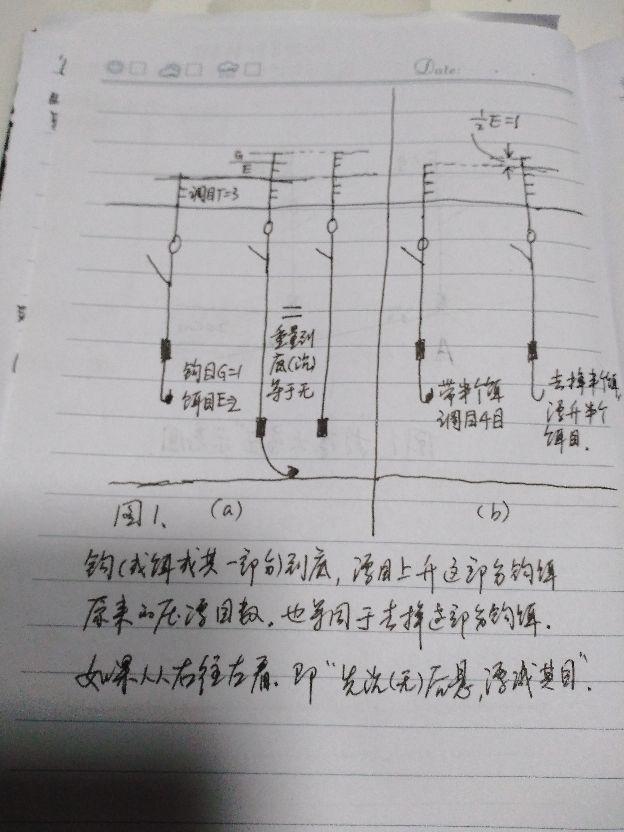 Date:
½E=1
G
E
调目T=3
钩目G=1
饵目E=2
=
重量到
底(沉)
等于无
带半个饵
调目4目
去掉半个饵,
漂升半个
饵目.
A
图1. (a) (b)
钩(或饵或其一部分)到底,漂目上升这部分钩饵
原来的压漂目数.也等同于去掉这部分钩饵.
如果从右往左看.即"先沉(无)后悬,漂减其目".